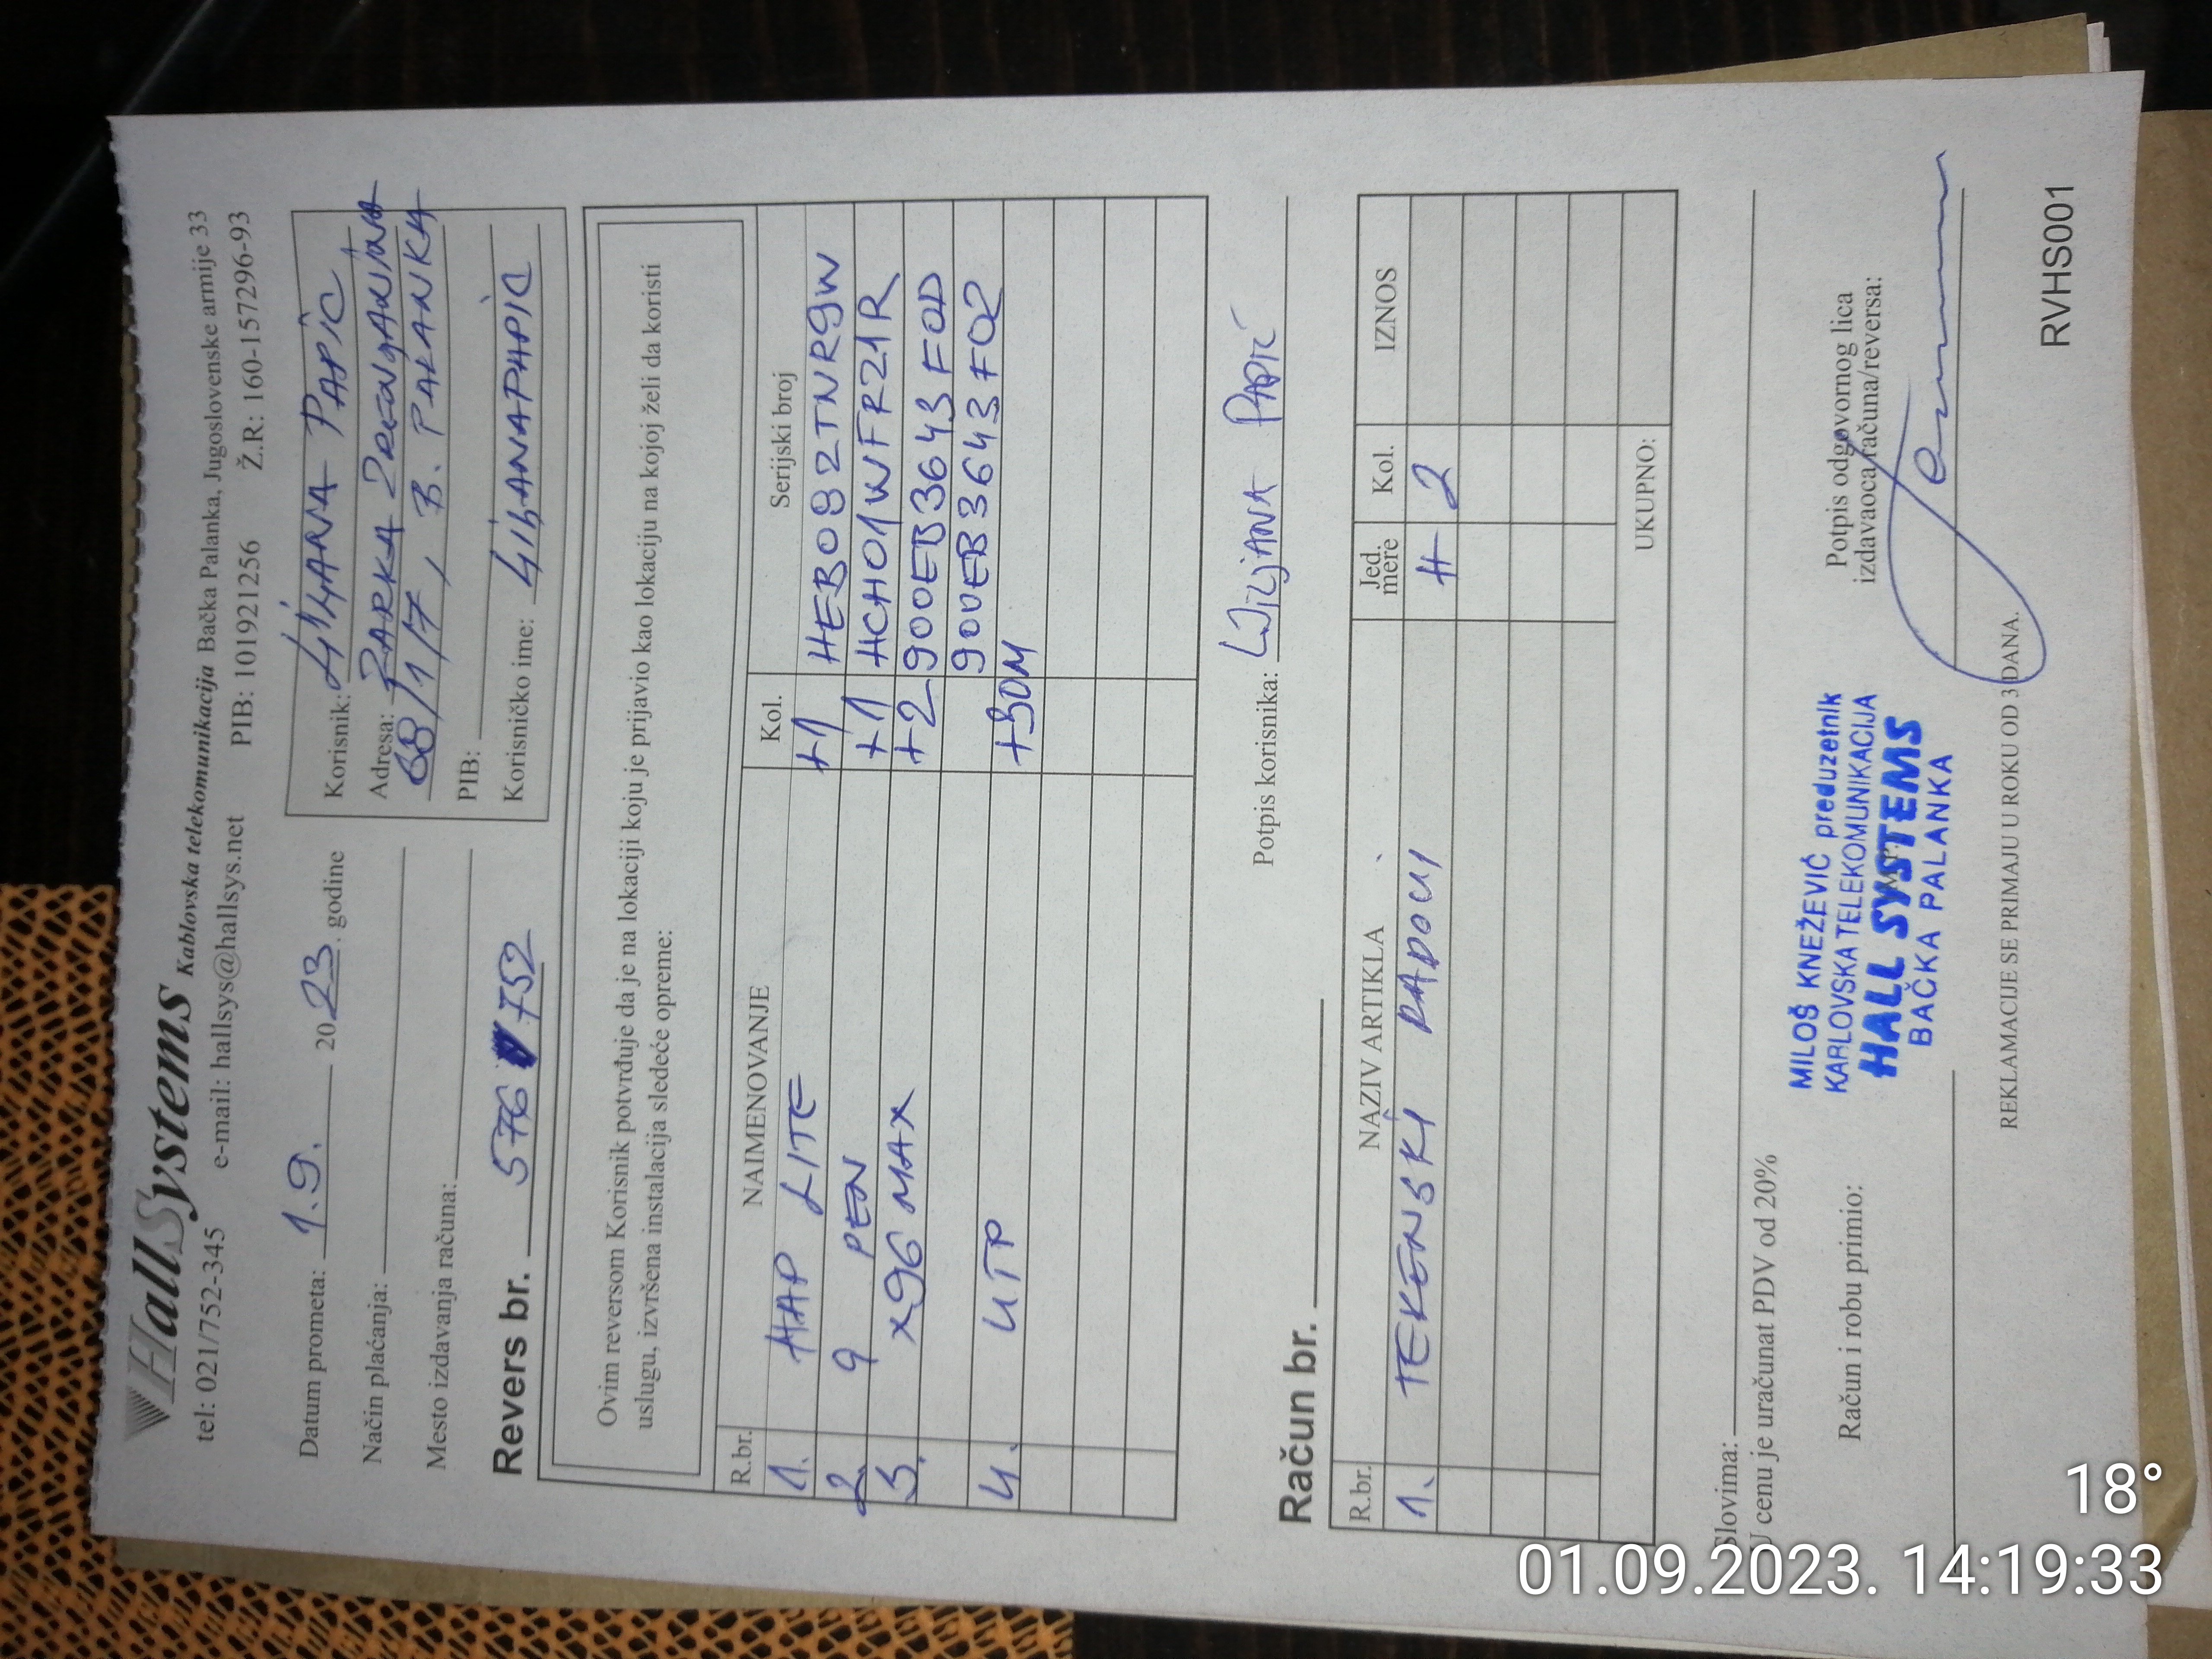 HallSystems Kablovska telekomunikacija Bačka Palanka, Jugoslovenske armije 33
tel: 021/752-345 e-mail: hallsys@hallsys.net PIB: 101921256 Ž.R: 160-157296-93
Datum prometa: 1.9. 2023. godine
Način plaćanja:
Mesto izdavanja računa:
Revers br. 576 752
Korisnik: PAPIĆ
Adresa: ŽARKA ZRENJANINA
68/1/7, B. PALANKA
PIB:
Korisničko ime: LILJANAPAPIC
Ovim reversom Korisnik potvrđuje da je na lokaciji koju je prijavio kao lokaciju na kojoj želi da koristi
uslugu, izvršena instalacija sledeće opreme:
R.br. NAIMENOVANJE Kol. Serijski broj
1. HAP LITE +1 HEB092TNR9W
2. 9 PEN +1 HCH01WFR21R
3. X96 MAX +2 900EB3643F0D
900EB3643F02
4. UTP +30M
Potpis korisnika: LJILJANA PAPIĆ
Račun br.
R.br. NAZIV ARTIKLA Jed. mere Kol. IZNOS
1. TERENSKI RADOVI H 2
UKUPNO:
Slovima:
U cenu je uračunat PDV od 20%
Račun i robu primio:
MILOŠ KNEŽEVIĆ preduzetnik
KABLOVSKA TELEKOMUNIKACIJA
HALL SYSTEMS
BAČKA PALANKA
Potpis odgovornog lica
izdavaoca računa/reversa:
REKLAMACIJE SE PRIMAJU U ROKU OD 3 DANA.
RVHS001
18°
01.09.2023. 14:19:33